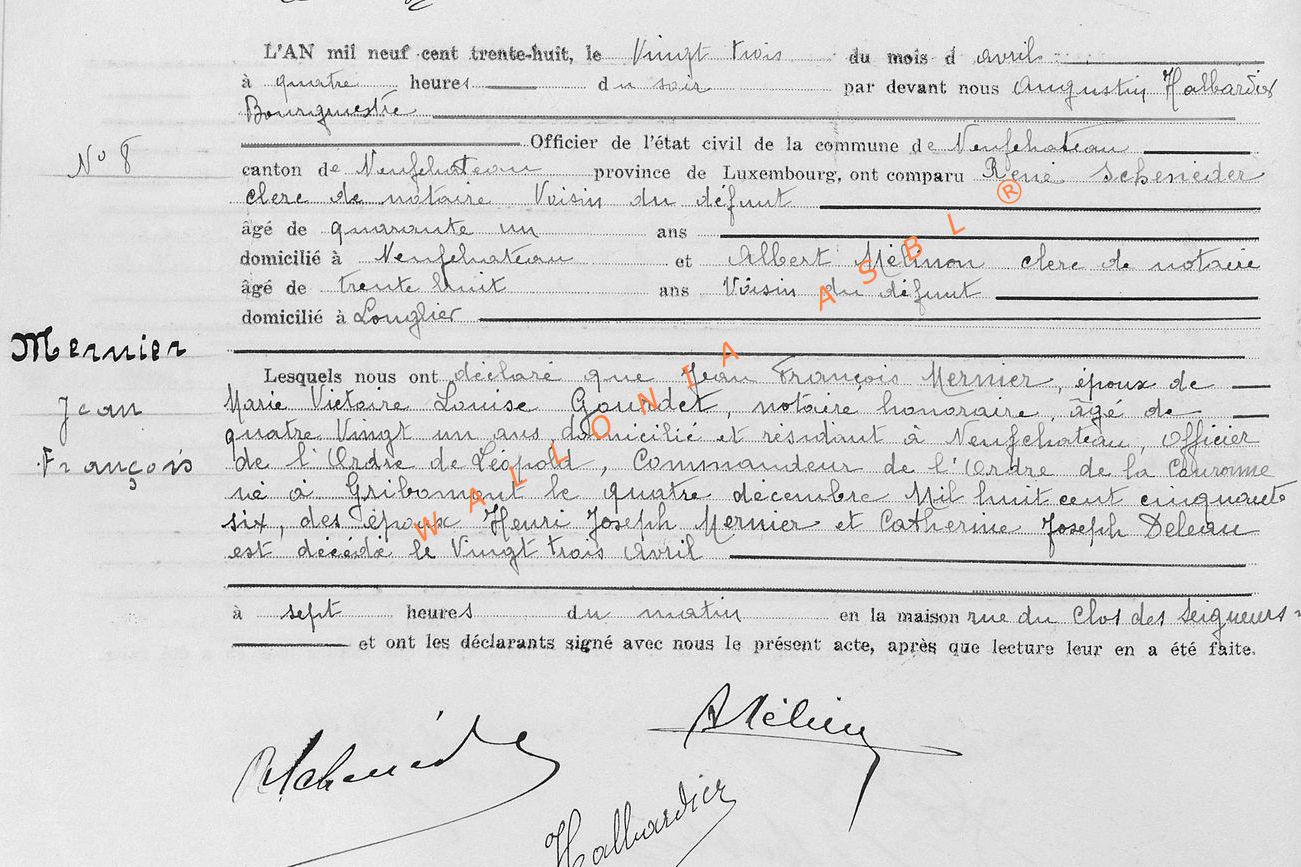 L'AN mil neuf cent trente-huit, le Vingt trois du mois d avril
à quatre heures du soir par devant nous Augustin Halbardier
Bourgmestre
Officier de l'état civil de la commune de Neufchateau
N° 8
canton de Neufchateau province de Luxembourg, ont comparu René Scheneider
clerc de notaire Voisin du défunt
âgé de quarante un ans
domicilié à Neufchateau et Albert Mélinon clerc de notaire
âgé de trente huit ans Voisin du défunt
domicilié à Longlier
Mernier
Jean
François
Lesquels nous ont déclaré que Jean François Mernier, époux de
Marie Victoire Louise Gourdet, notaire honoraire, âgé de
quatre Vingt un ans, domicilié et résidant à Neufchateau, Officier
de l'Ordre de Léopold, Commandeur de l'Ordre de la Couronne
né à Gribomont le quatre décembre Mil huit cent cinquante
six, des époux Henri Joseph Mernier et Catherine Joseph Deleau
est décédé le Vingt trois Avril
à sept heures du matin en la maison rue du Clos des Seigneurs
et ont les déclarants signé avec nous le présent acte, après que lecture leur en a été faite.
WALLONIA ASBL ®
Halbardier